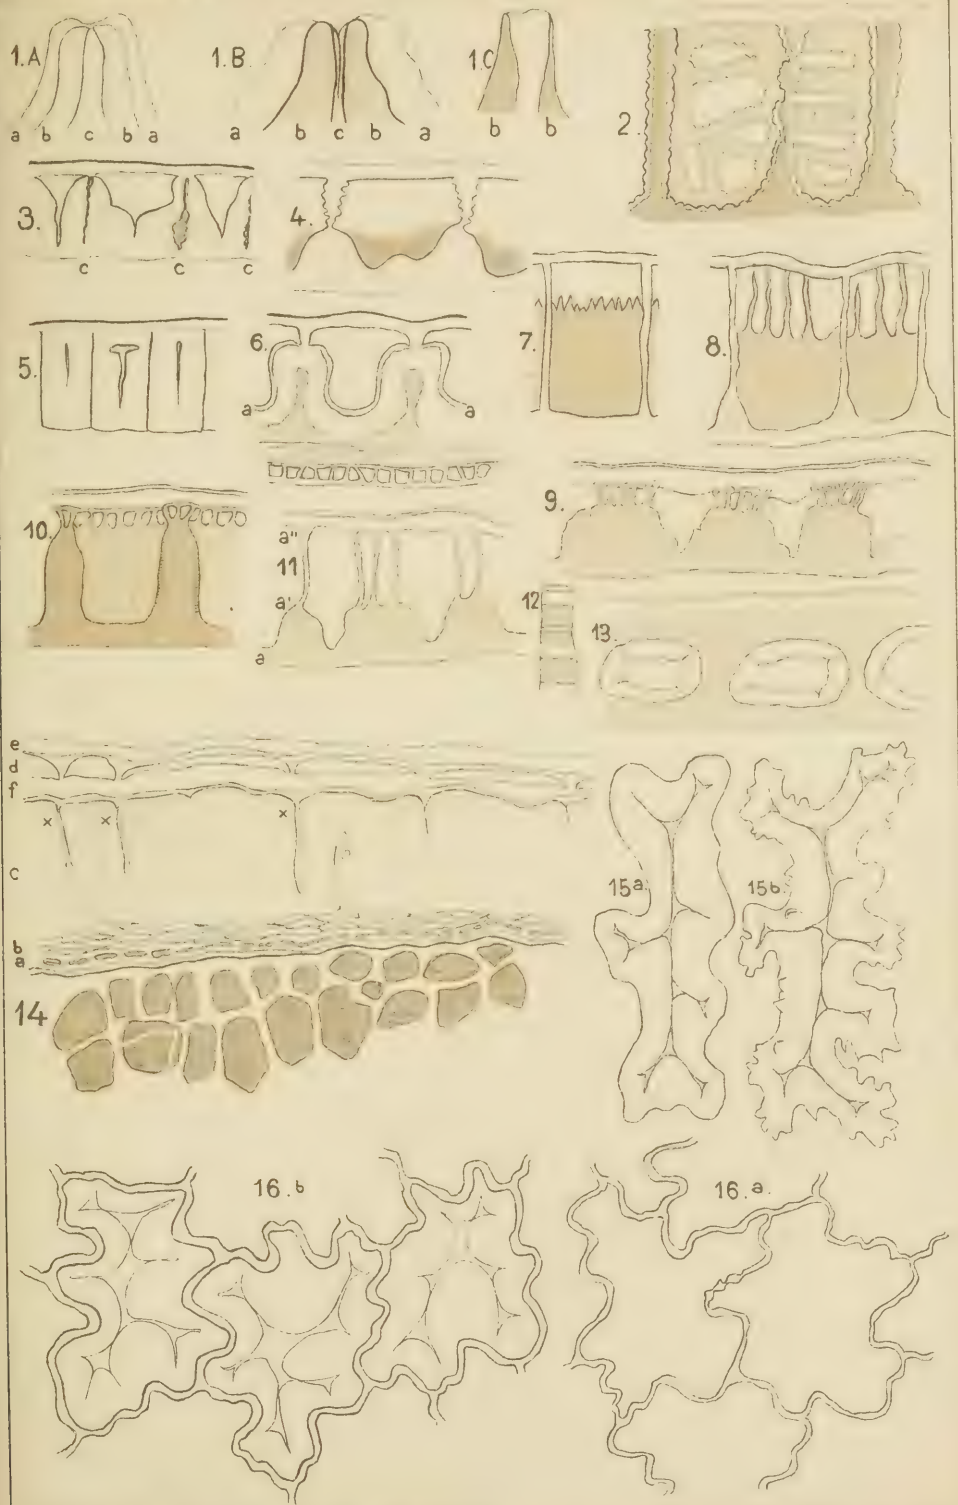 1.A
a b c b a
1.B
a b c b a
1.C
b b
2.
3.
c c c
4.
5.
6.
a a
7.
8.
9.
10.
11
a"
a'
a
12
13.
e
d
f
x x x
c
b
a
14
15 a.
15 b.
16.b
16.a.